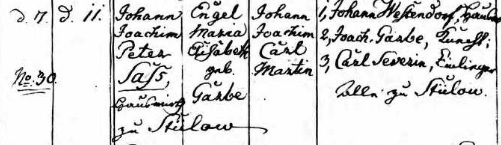 d. 7. d. 11. Johann Engel Johann 1, Johann Westendorf,
Joachim Maria Joachim 2, Joach. Garbe, Knecht;
Peter Elisabeth Carl 3, Carl Severin, Einlieger
No. 30 Saß, geb. Martin alle zu Stülow.
Hauswirth Garbe
zu Stülow